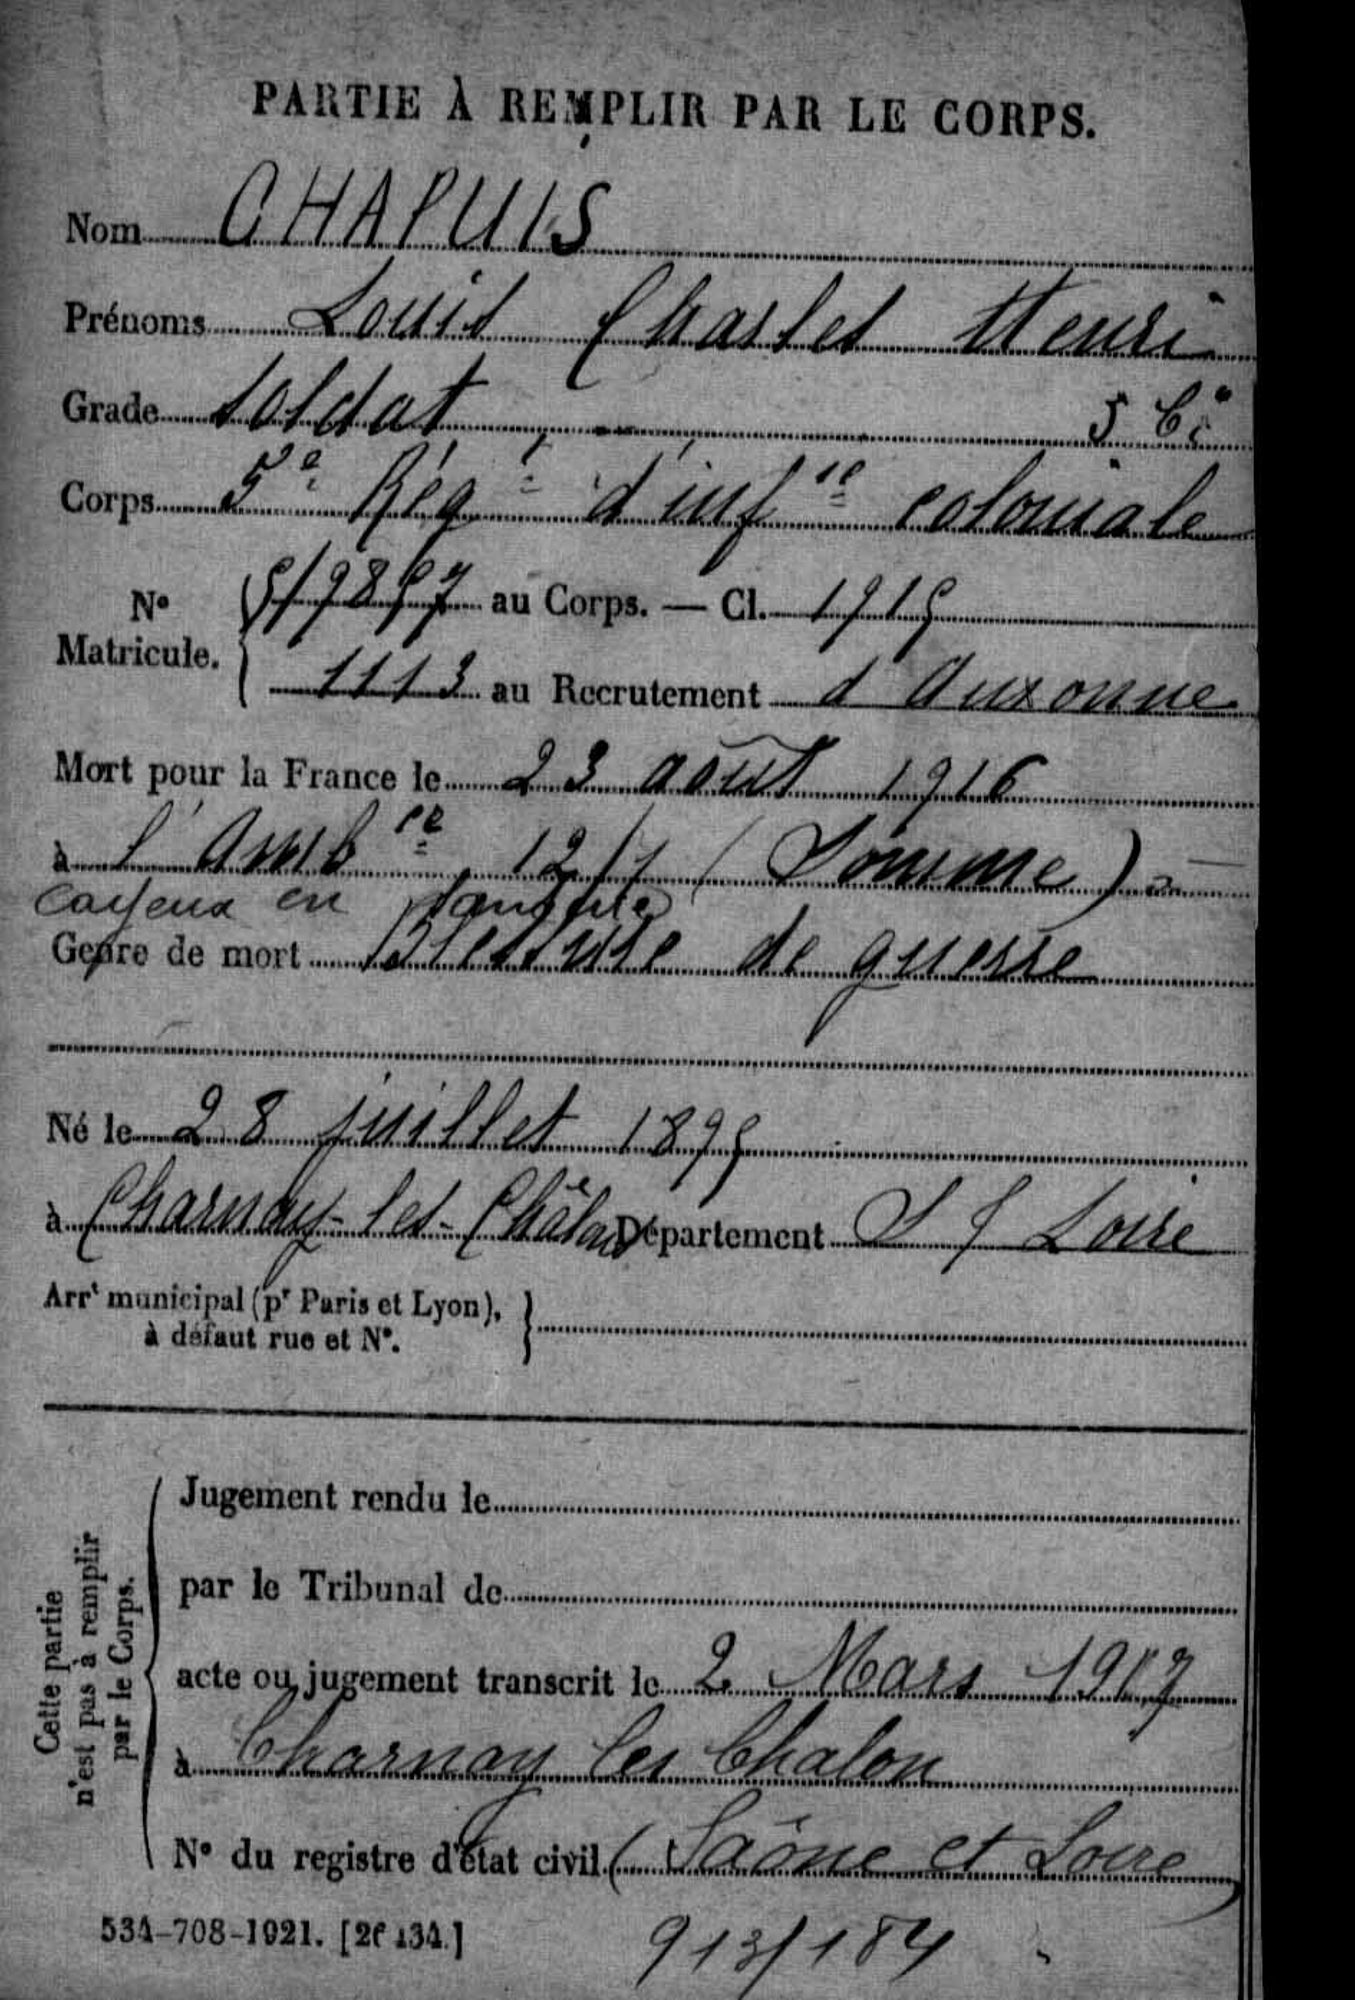 PARTIE À REMPLIR PAR LE CORPS.
Nom CHAPUIS
Prénoms Louis Charles Henri
Grade soldat 5 Cie
Corps 5e Régt d'infie coloniale
No Matricule. 
au Corps. — Cl. 1915
1113 au Recrutement d'Auxonne
Mort pour la France le 23 août 1916
à l'Ambce 12/1 (Somme)
Cayeux en Santerre
Genre de mort Blessure de guerre
Né le 28 juillet 1895
à Charnay-les-Châlon Département S & Loire
Arrt municipal (pr Paris et Lyon),
à défaut rue et No.
Cette partie
n'est pas à remplir
par le Corps.
Jugement rendu le
par le Tribunal de
acte ou jugement transcrit le 2 Mars 1917
à Charnay les Chalon
No du registre d'état civil (Saône et Loire)
534-708-1921. [26434.]
913/184